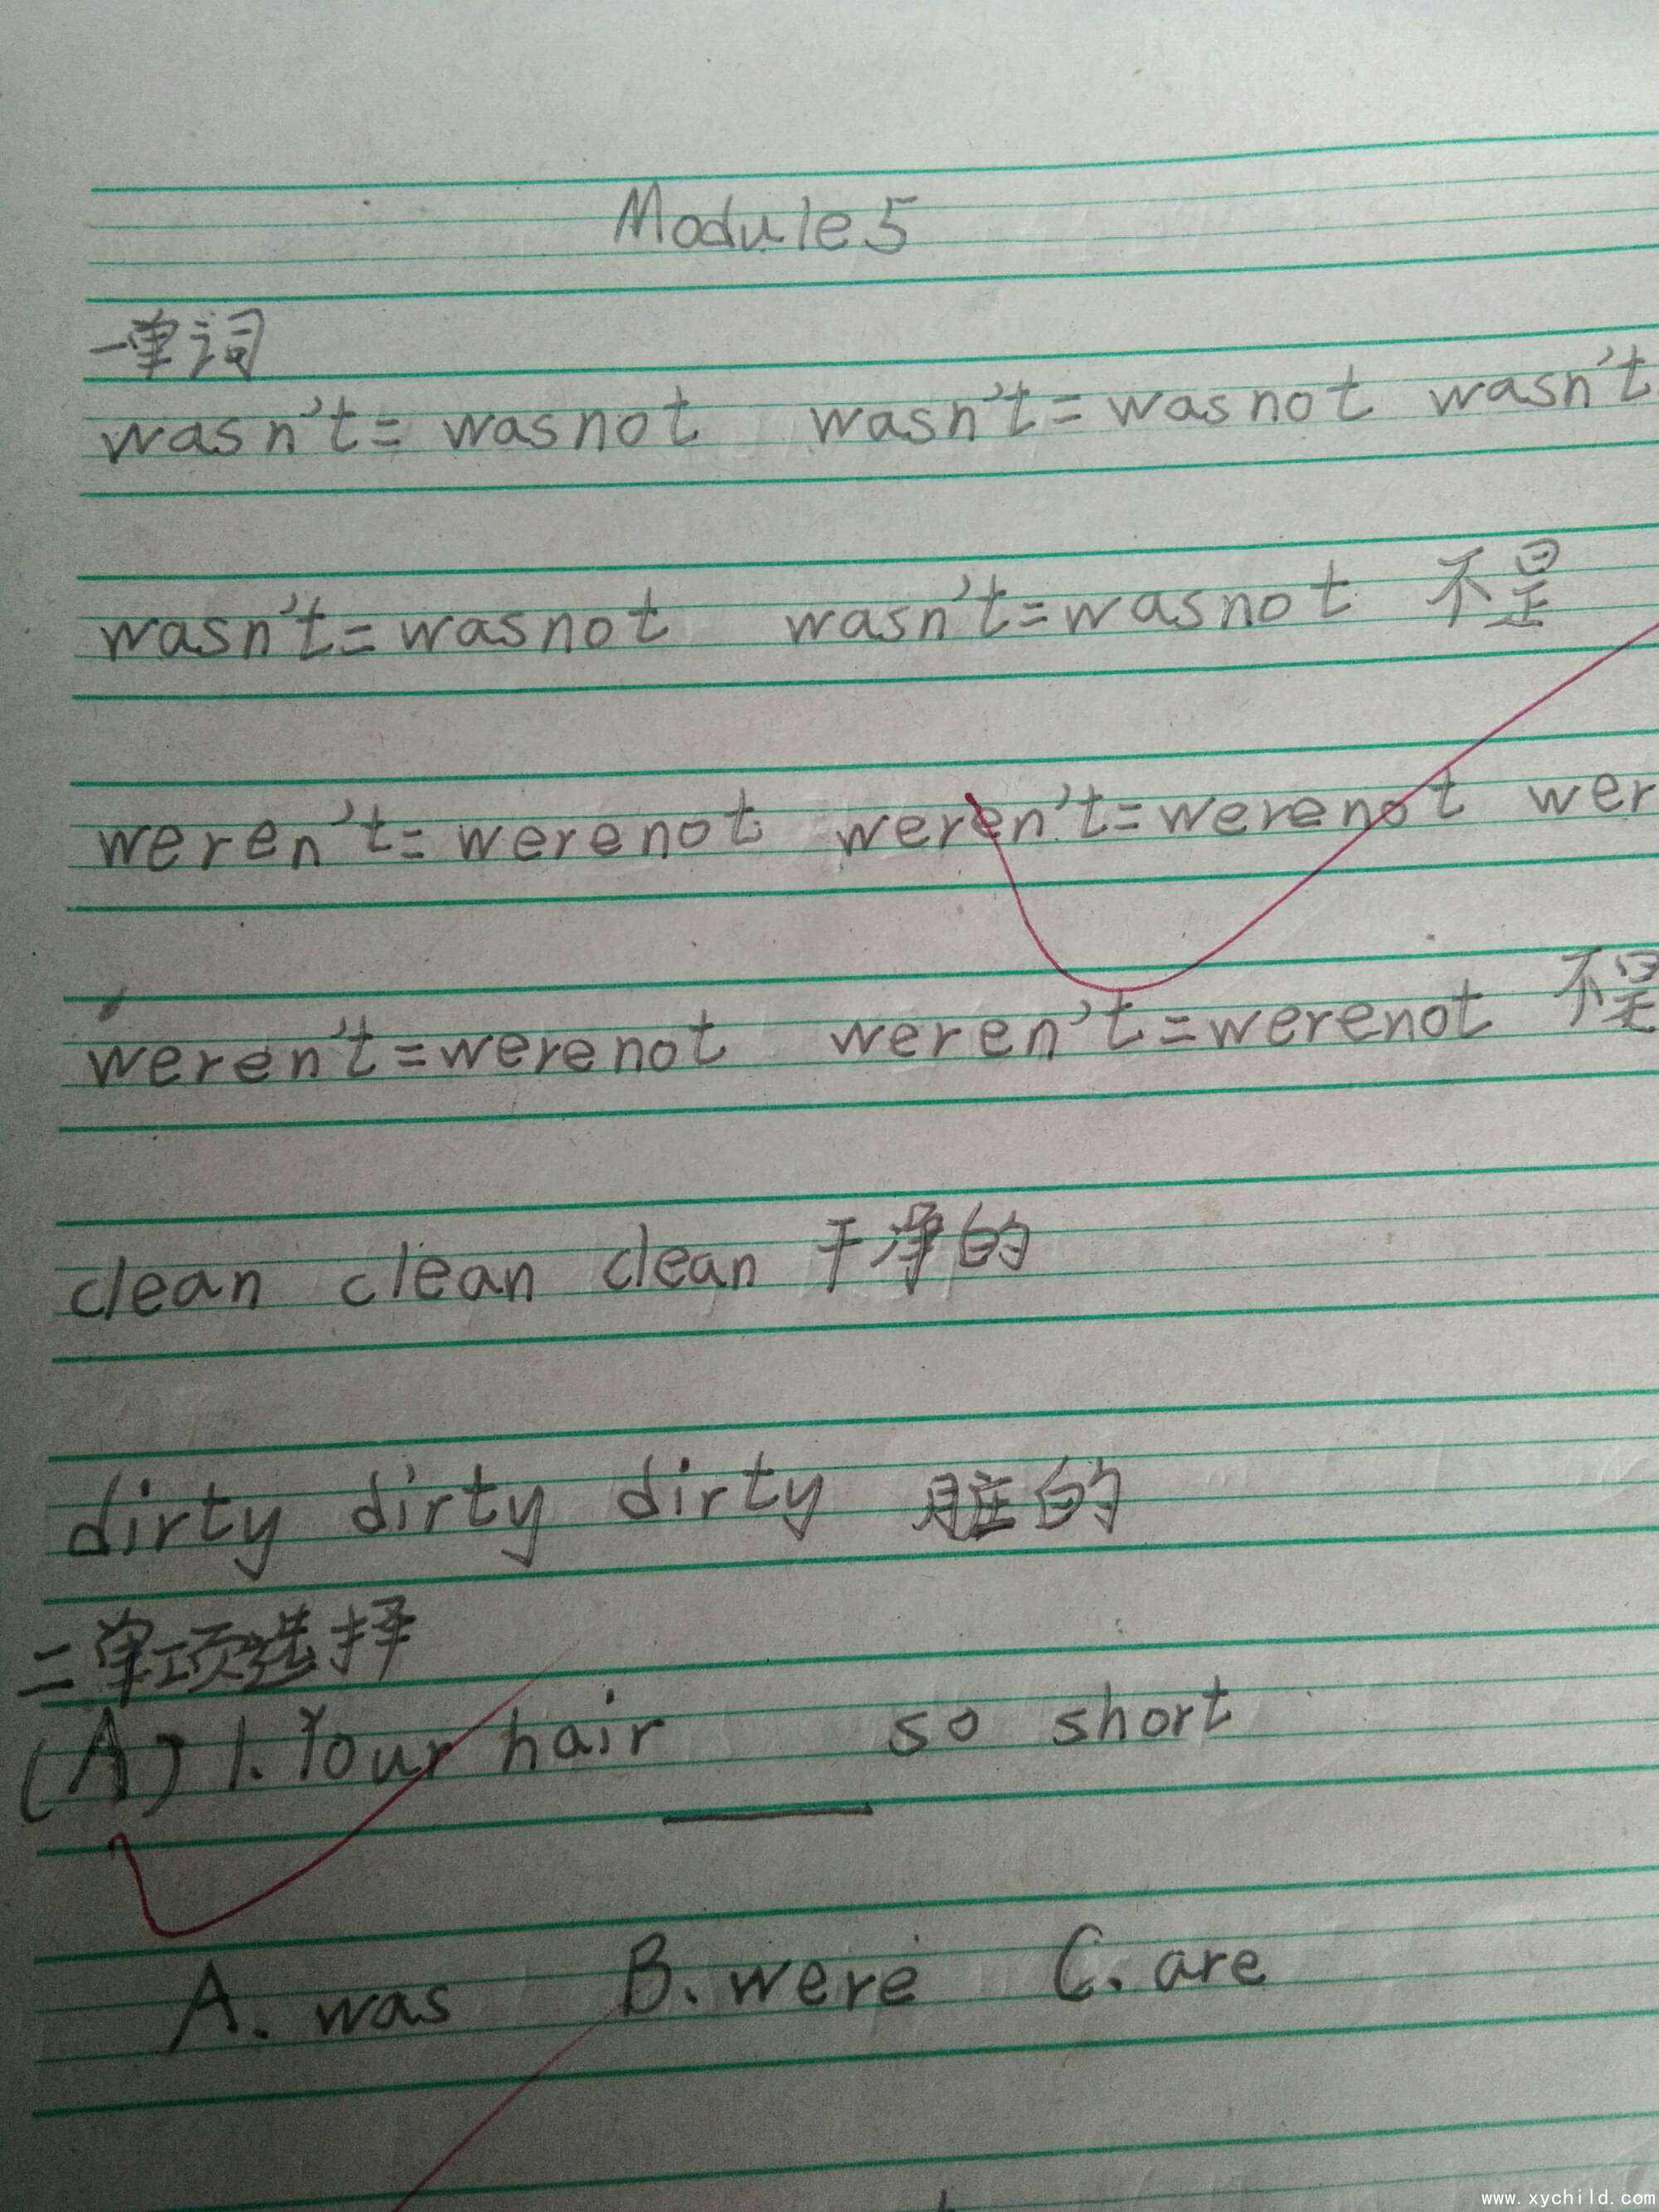 Module 5
一单词
wasn't = was not wasn't = was not wasn't
wasn't = was not wasn't = was not 不是
weren't = were not weren't = were not wer
weren't = were not weren't = were not 不是
clean clean clean 干净的
dirty dirty dirty 脏的
二单项选择
(A) 1. Your hair ____ so short
A. was B. were C. are
www.xychild.com